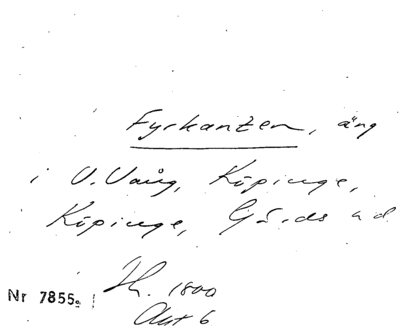 Fyrkanten, äng
i V. Vång, Köpinge,
Köpinge, Gärds hd
Nr 7855. Sk. 1800
Akt 6